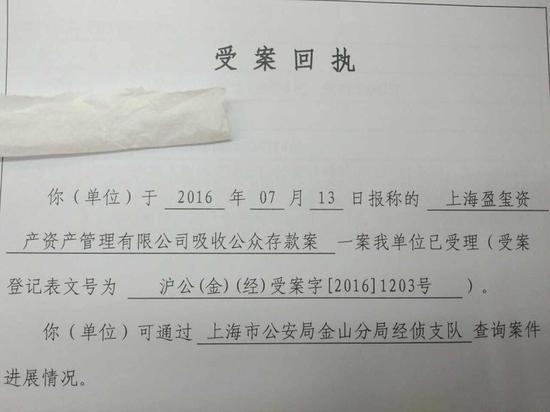 受案回执
你（单位）于 2016 年 07 月 13 日报称的 上海盈玺资
产资产管理有限公司吸收公众存款案 一案我单位已受理（受案
登记表文号为 沪公(金)(经)受案字[2016]1203号 ）。
你（单位）可通过 上海市公安局金山分局经侦支队 查询案件
进展情况。